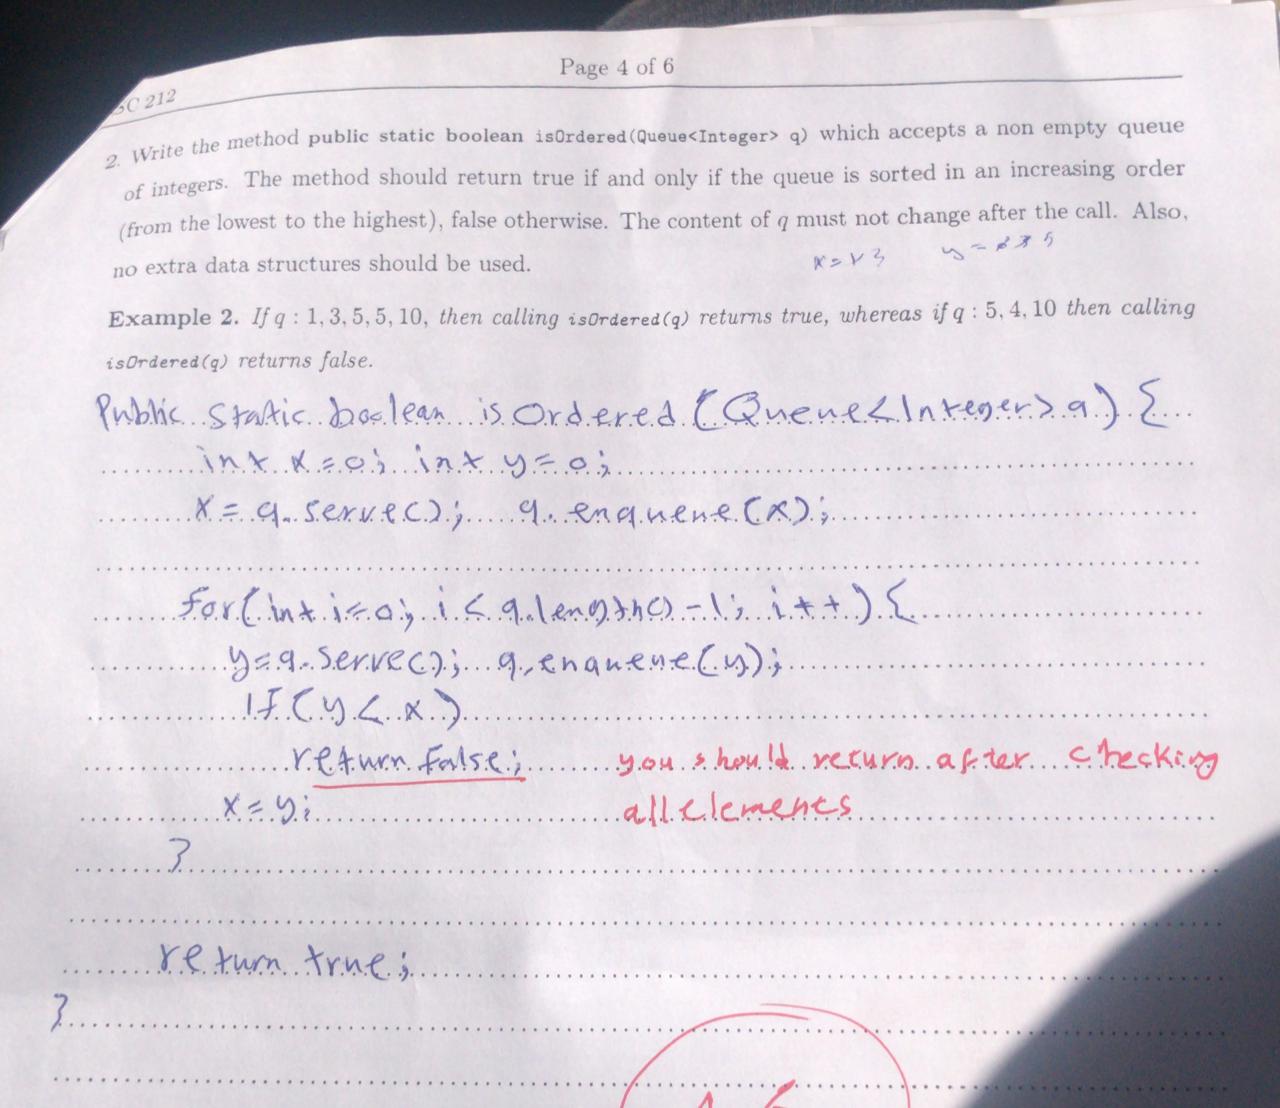 Page 4 of 6
SC 212
2. Write the method public static boolean isOrdered(Queue<Integer> q) which accepts a non empty queue
of integers. The method should return true if and only if the queue is sorted in an increasing order
(from the lowest to the highest), false otherwise. The content of q must not change after the call. Also,
no extra data structures should be used.
Example 2. If q : 1, 3, 5, 5, 10, then calling isOrdered(q) returns true, whereas if q : 5, 4, 10 then calling
isOrdered(q) returns false.
Public static boolean isOrdered (Queue<Integer> q) {
int x=0; int y=0;
x = q.serve(); q.enqueue(x);
for(int i=0; i< q.length()-1; i++){
y=q.serve(); q.enqueue(y);
If(y< x)
return false; you should return after checking
x=y; all elements
}
return true;
}